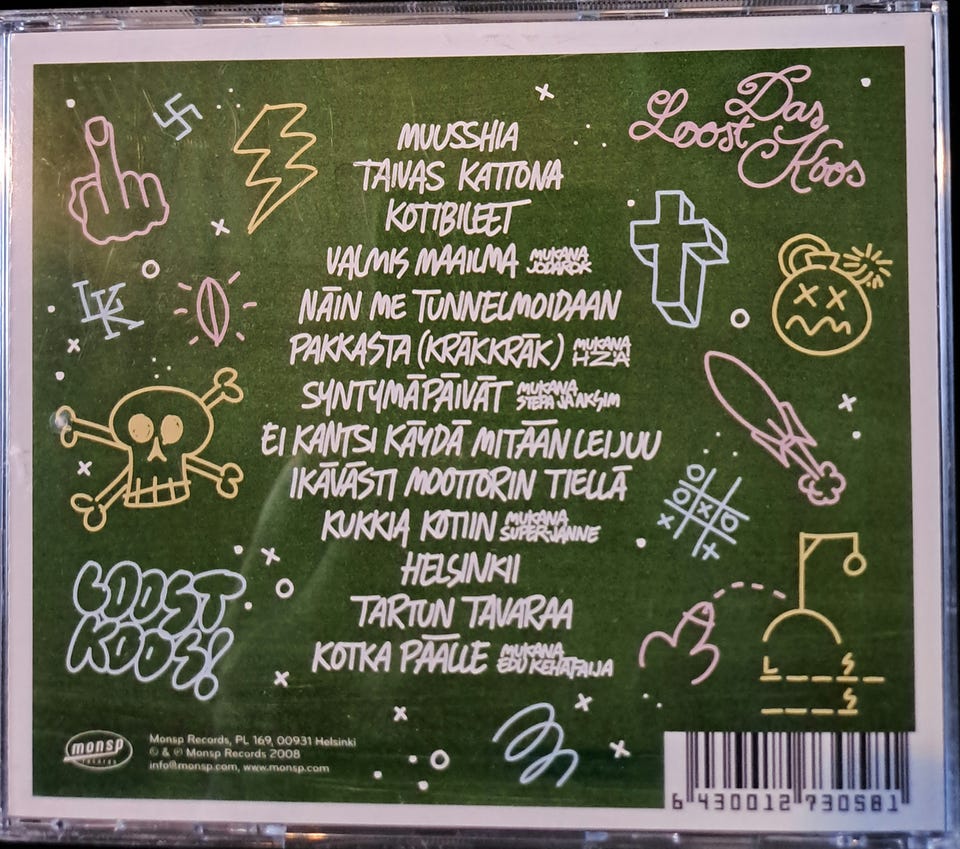 Das
Loost
Koos
MUUSSHIA
TAIVAS KATTONA
KOTIBILEET
VALMIS MAAILMA MUKANA JODAROK
NÄIN ME TUNNELMOIDAAN
PAKKASTA (KRÄKKRÄK) MUKANA HZ'Ä!
SYNTYMÄPÄIVÄT MUKANA STEPA JA AKSIM
EI KANTSI KÄYDÄ MITÄÄN LEIJUU
IKÄVÄSTI MOOTTORIN TIELLÄ
KUKKIA KOTIIN MUKANA SUPERJANNE
HELSINKII
TARTUN TAVARAA
KOTKA PÄÄLLE MUKANA EDU KEHÄTAIJA
LK
LOOST
KOOS!
L _ _ _ S _
_ _ _ S
monsp
records
Monsp Records, PL 169, 00931 Helsinki
© & ℗ Monsp Records 2008
info@monsp.com, www.monsp.com
6 430012 730581